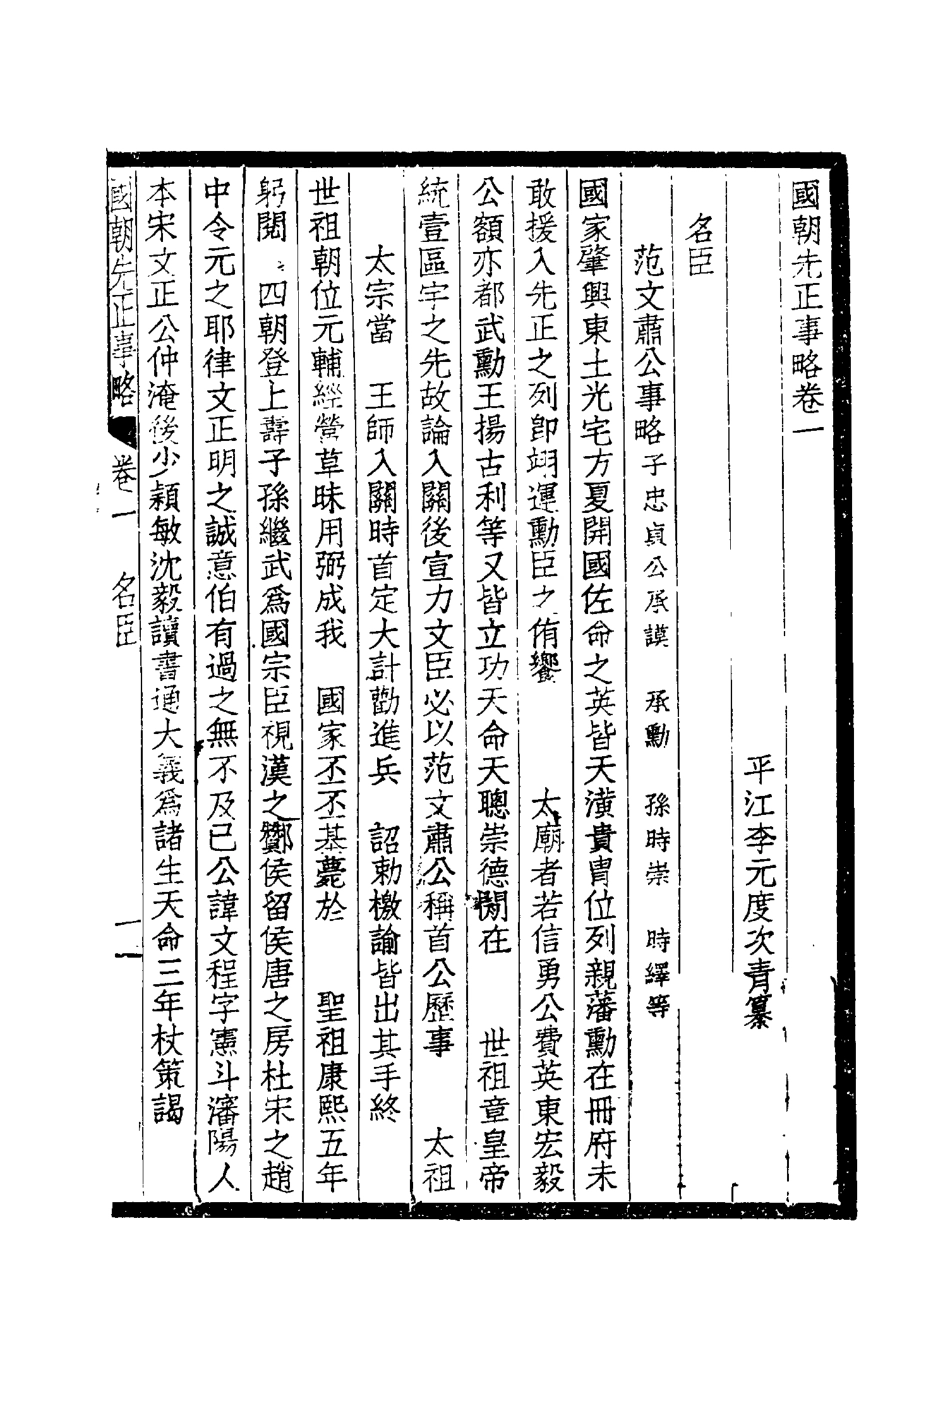 國朝先正事略卷一
平江李元度次青纂
名臣
范文肅公事略子忠貞公承謨　承勳　孫時崇　時繹等
國家肇興東土光宅方夏開國佐命之英皆天潢貴冑位列親藩勳在冊府未
敢援入先正之列卽翊運勳臣之侑饗　　太廟者若信勇公費英東宏毅
公額亦都武勳王揚古利等又皆立功天命天聰崇德閒在　　世祖章皇帝
統壹區宇之先故論入關後宣力文臣必以范文肅公稱首公歷事　　太祖
太宗當　王師入關時首定大計勸進兵　詔勅檄諭皆出其手終
世祖朝位元輔經營草昧用弼成我　國家丕丕基薨於　　聖祖康熙五年
躬閱　四朝登上壽子孫繼武爲國宗臣視漢之酇侯留侯唐之房杜宋之趙
中令元之耶律文正明之誠意伯有過之無不及已公諱文程字憲斗瀋陽人
本宋文正公仲淹後少穎敏沈毅讀書通大義爲諸生天命三年杖策謁
國朝先正事略　卷一　名臣　一